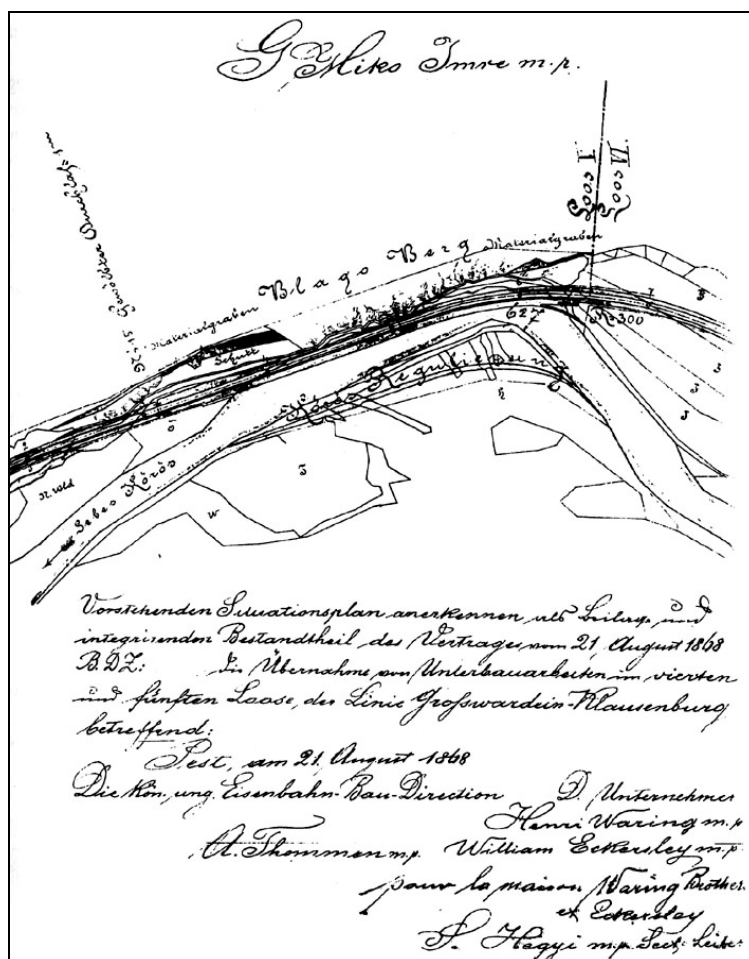 G Miko Imre m.p.
Loos I
Loos II
Materialgraben
Blago Berg
Materialgraben
Schutt
627
R 300
Körös Regulierung
N. Wld
Sebes Körös
W
Vorstehenden Situationsplan anerkennen als Beilage und
integrirenden Bestandtheil des Vertrages vom 21. August 1868
B.D.Z: die Übernahme von Unterbauarbeiten im vierten
und fünften Loose, der Linie Großwardein-Klausenburg
betreffend:
Pest, am 21. August 1868
Die Kön. ung. Eisenbahn-Bau-Direction D. Unternehmer
Henri Waring m.p
A. Thommen m.p. William Eckersley m.p
pour la maison Waring Brother
et Eckersley
S. Hegyi m.p. Sect: Leiter